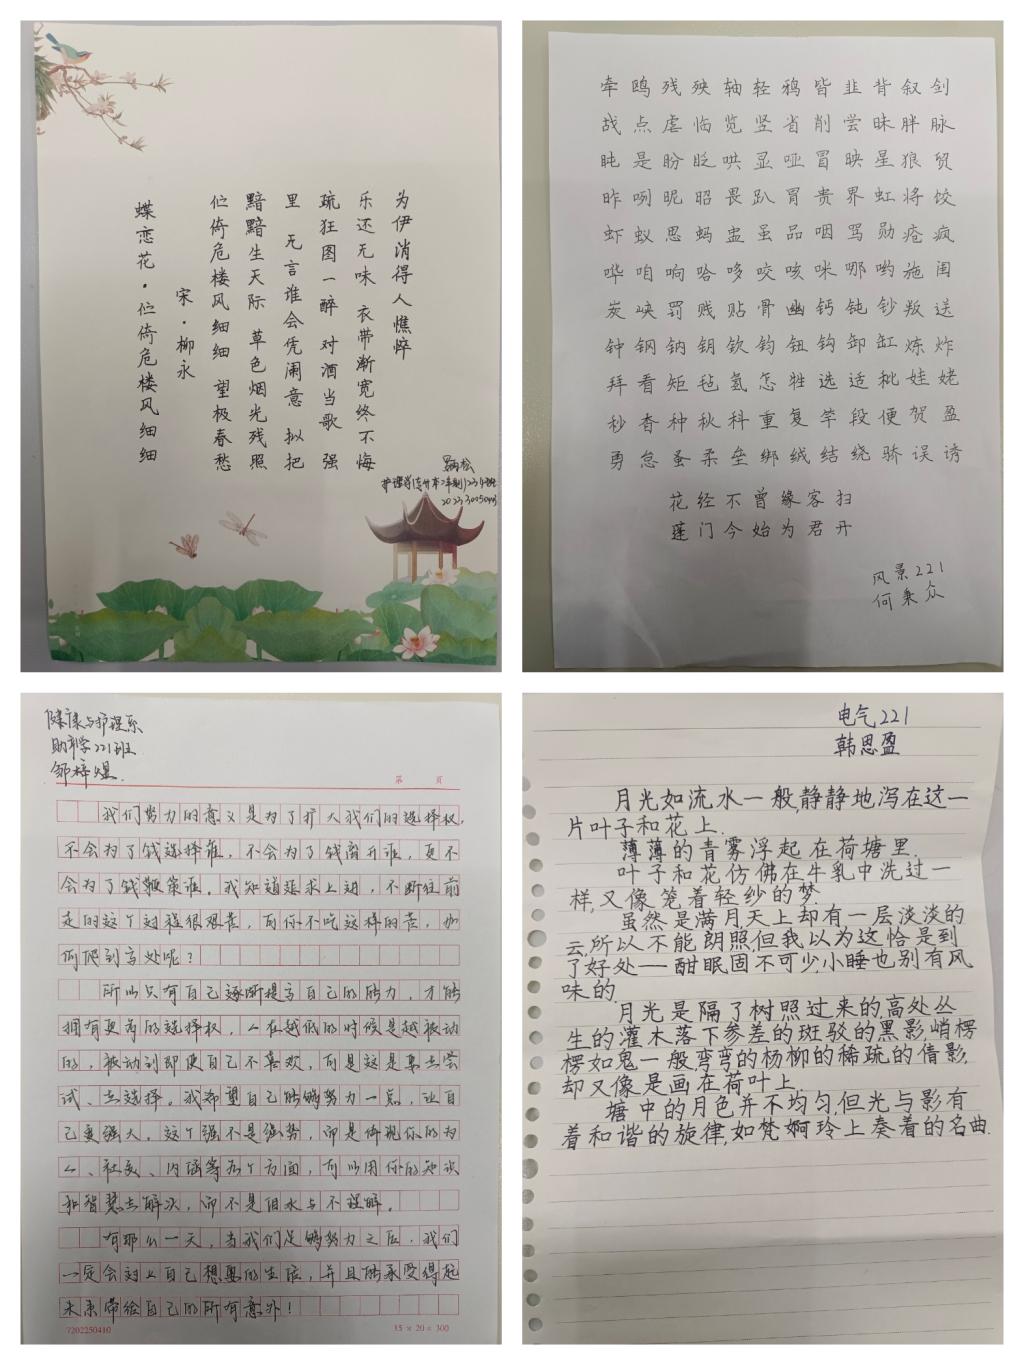 蝶恋花·伫倚危楼风细细
宋·柳永
伫倚危楼风细细 望极春愁
黯黯生天际 草色烟光残照
里 无言谁会凭阑意 拟把
疏狂图一醉 对酒当歌 强
乐还无味 衣带渐宽终不悔
为伊消得人憔悴
牵鸥残殃轴轻鸦皆韭背叙剑
战点虐临览竖省削尝昧胖脉
盹是盼眨哄显哑冒映星狼贸
昨咧昵昭畏趴胃贵界虹将饺
虾蚁思蚂盅虽品咽骂勋疮疯
哗咱响哈哆咬咳咪哪哟施闺
炭峡罚贱贴骨幽钙钝钞叛送
钟钢钠钥钦钧钮钩卸缸炼炸
拜看矩毡氢怎牲选适秕娃姥
秒香种秋科重复竿段便贺盈
勇怠蚤柔垒绑绒结绕骄误诱
花经不曾缘客扫
蓬门今始为君开
风景221
何秉众
健康与护理系
助产学221班
邹梓煜
第 页
我们努力的意义是为了扩大我们的选择权,
不会为了钱选择谁,不会为了钱离开谁,更不
会为了钱鞭策谁。我知道追求上进,不断往前
走的这个过程很艰苦,可你不吃这样的苦,如
何爬到高处呢?
所以只有自己逐渐提高自己的能力,才能
拥有更多的选择权,人在越低的时候是越被动
的,被动到即使自己不喜欢,可是这是要去尝
试、去选择。我希望自己能够努力一点,让自
己变强大,这个强不是强势,而是体现你的为
人、社交、内涵等各个方面,可以用你的知识
和智慧去解决,而不是泪水与不理解。
有那么一天,当我们足够努力之后,我们
一定会过上自己想要的生活,并且能承受得起
未来带给自己的所有意外!
7202250410
15 × 20 = 300
电气221
韩思盈
月光如流水一般,静静地泻在这一
片叶子和花上.
薄薄的青雾浮起在荷塘里.
叶子和花仿佛在牛乳中洗过一
样,又像笼着轻纱的梦.
虽然是满月,天上却有一层淡淡的
云,所以不能朗照,但我以为这恰是到
了好处——酣眠固不可少,小睡也别有风
味的.
月光是隔了树照过来的,高处丛
生的灌木落下参差的斑驳的黑影,峭楞
楞如鬼一般,弯弯的杨柳的稀疏的倩影,
却又像是画在荷叶上.
塘中的月色并不均匀,但光与影有
着和谐的旋律,如梵婀玲上奏着的名曲.